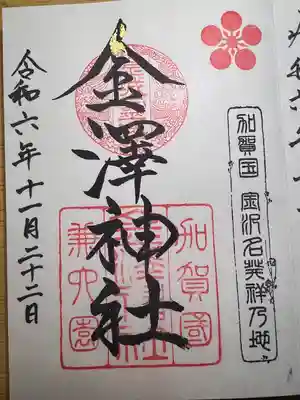 加賀国 金沢名発祥乃地
金澤神社
加賀國
金澤神社
兼六園
令和六年十一月二十二日